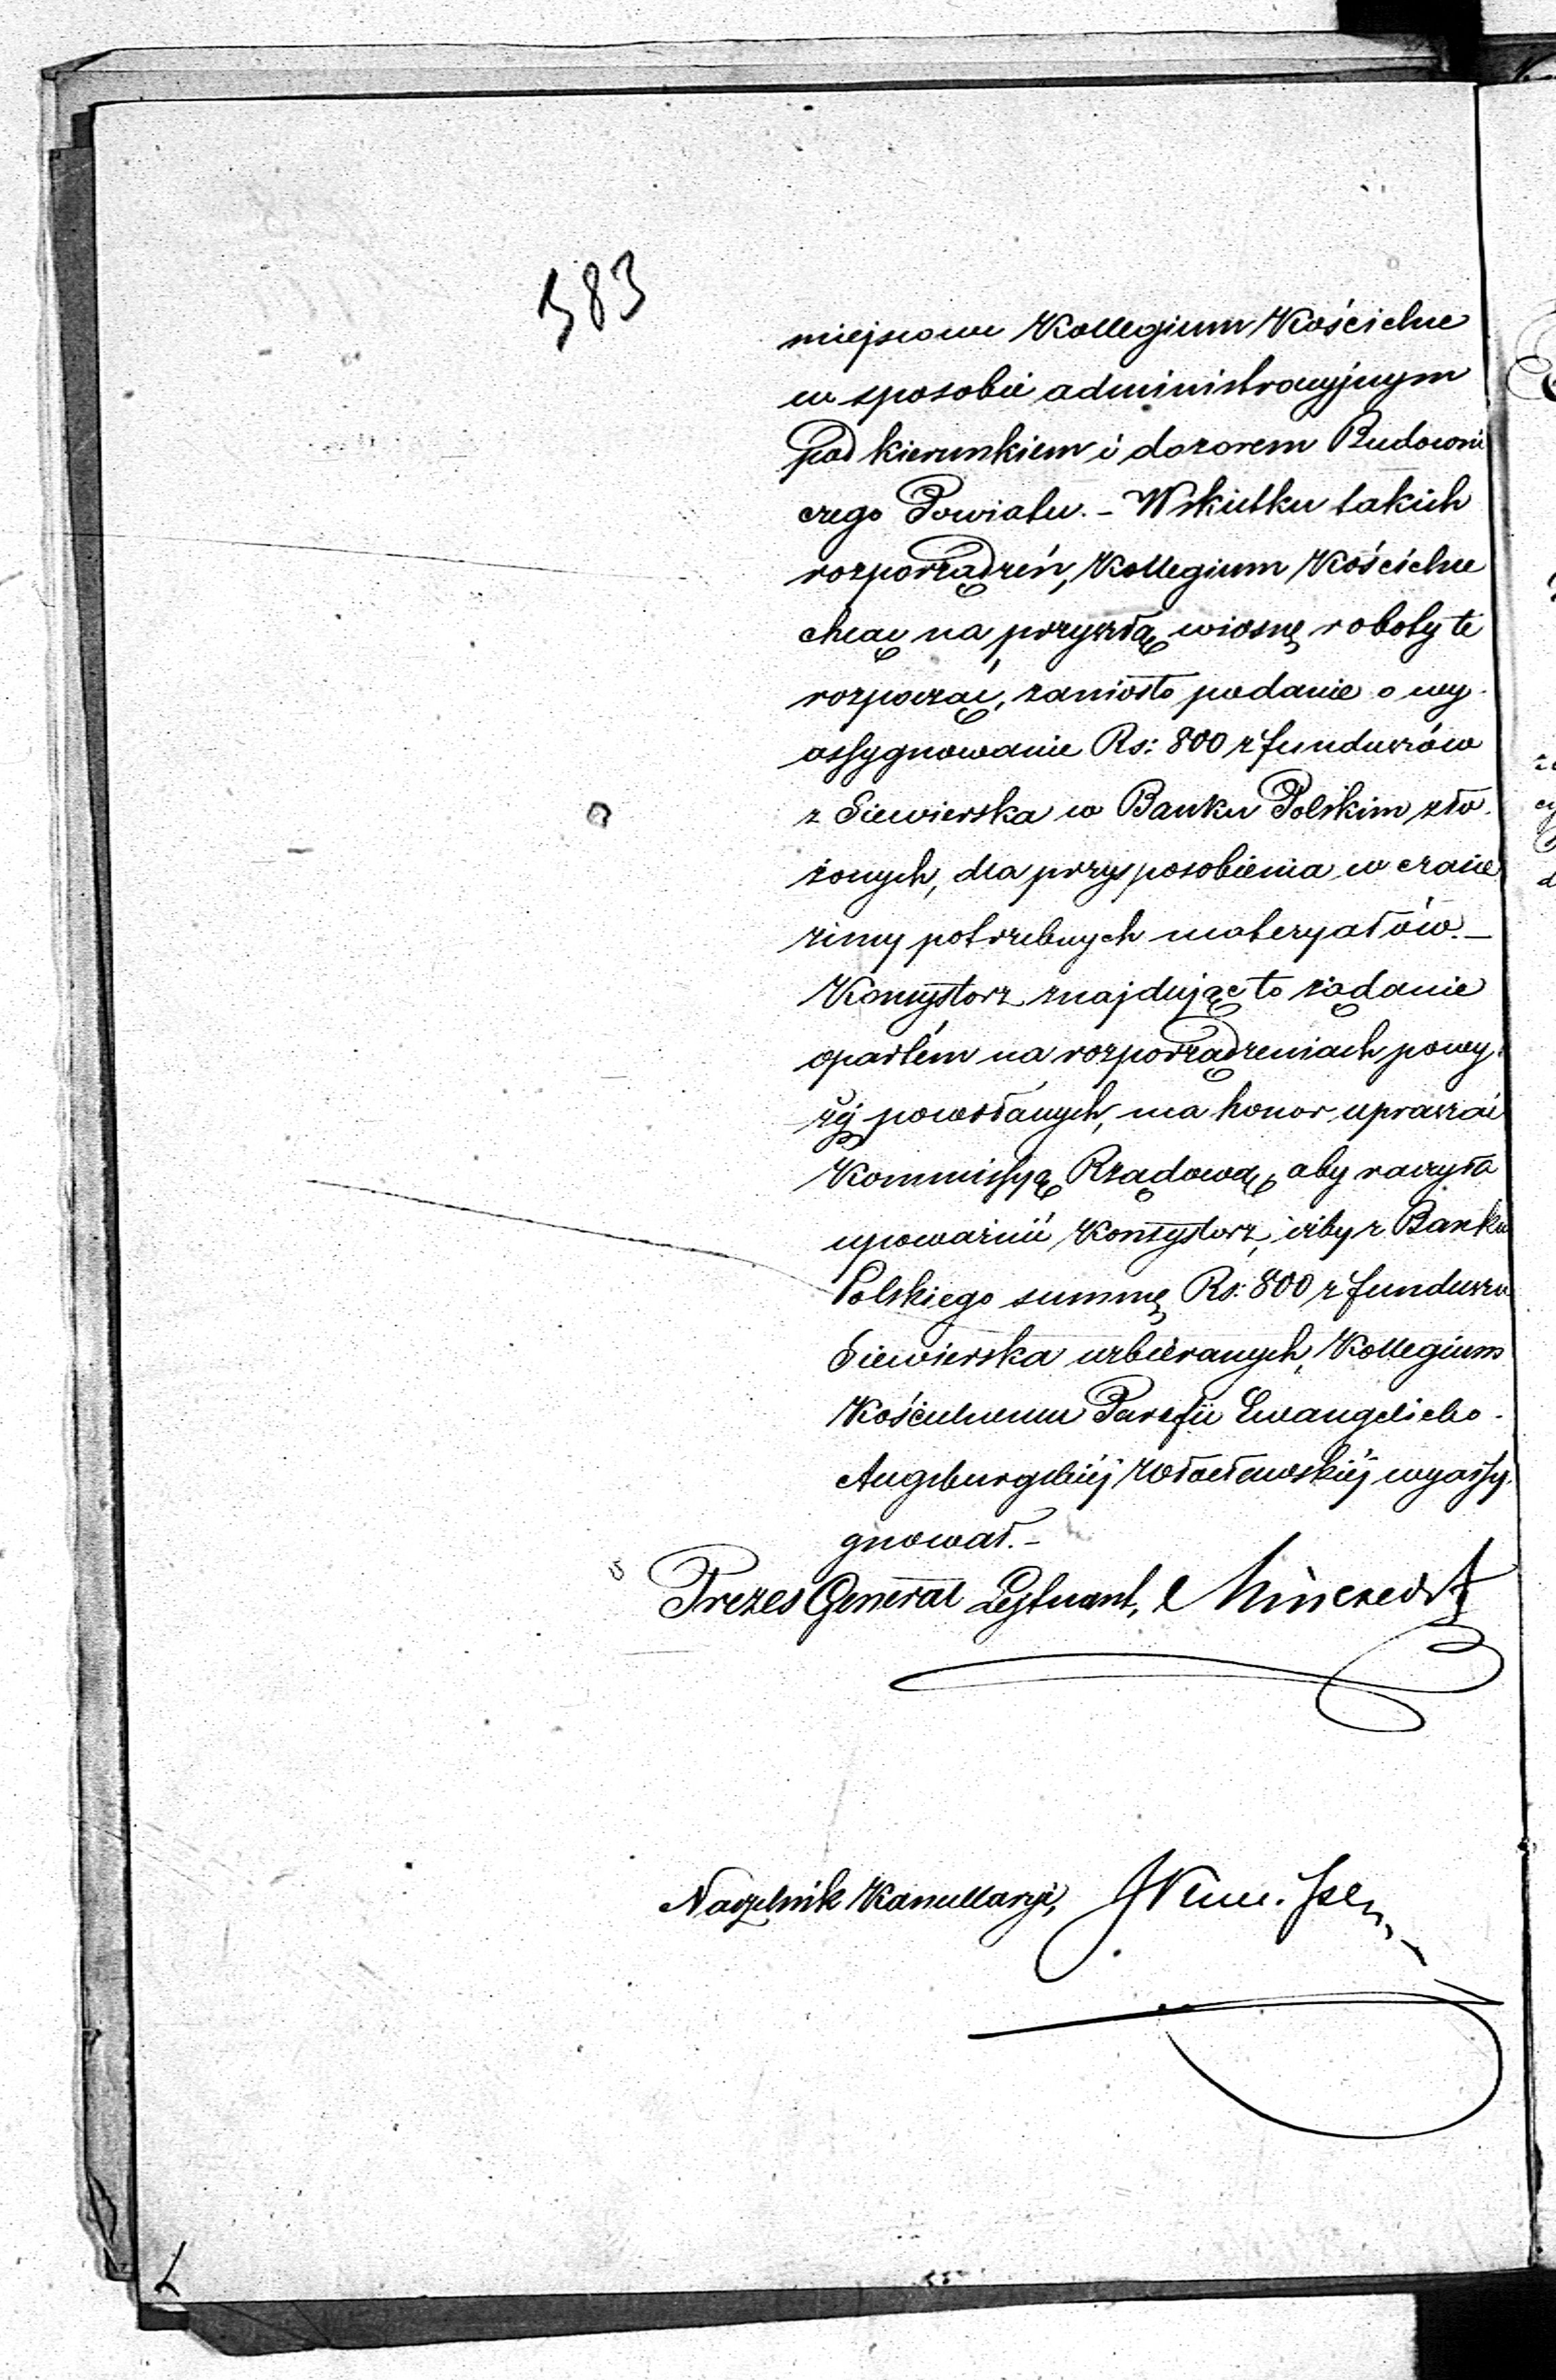 583
miejscowe Kollegium Kościelne
w sposobie administracyjnym
pod kierunkiem i dozorem Budowni
czego Powiatu. - Wskutku takich
rozporządzeń, Kollegium Kościelne
chcąc na przyszłą wiosnę roboty te
rozpocząć, zaniosło podanie o wy-
assygnowanie Rs: 800 z funduszów
z Siewierska w Banku Polskim zło-
żonych, dla przysposobienia w czasie
zimy potrzebnych materyałów. -
Konsystorz znajdując to żądanie
opartém na rozporządzeniach powy-
żéj powołanych, ma honor upraszać
Kommissyą Rządową, aby raczyła
upoważnić Konsystorz, iżby z Banku
Polskiego summę Rs: 800 z funduszu
Siewierska uzbieranych, Kollegium
Kościelnemu Parafii Ewangelicko-
Augsburgskiéj Włocławskiéj wyassy-
gnował. -
Prezes Generał Lejtnant,
Naczelnik Kancellaryi,